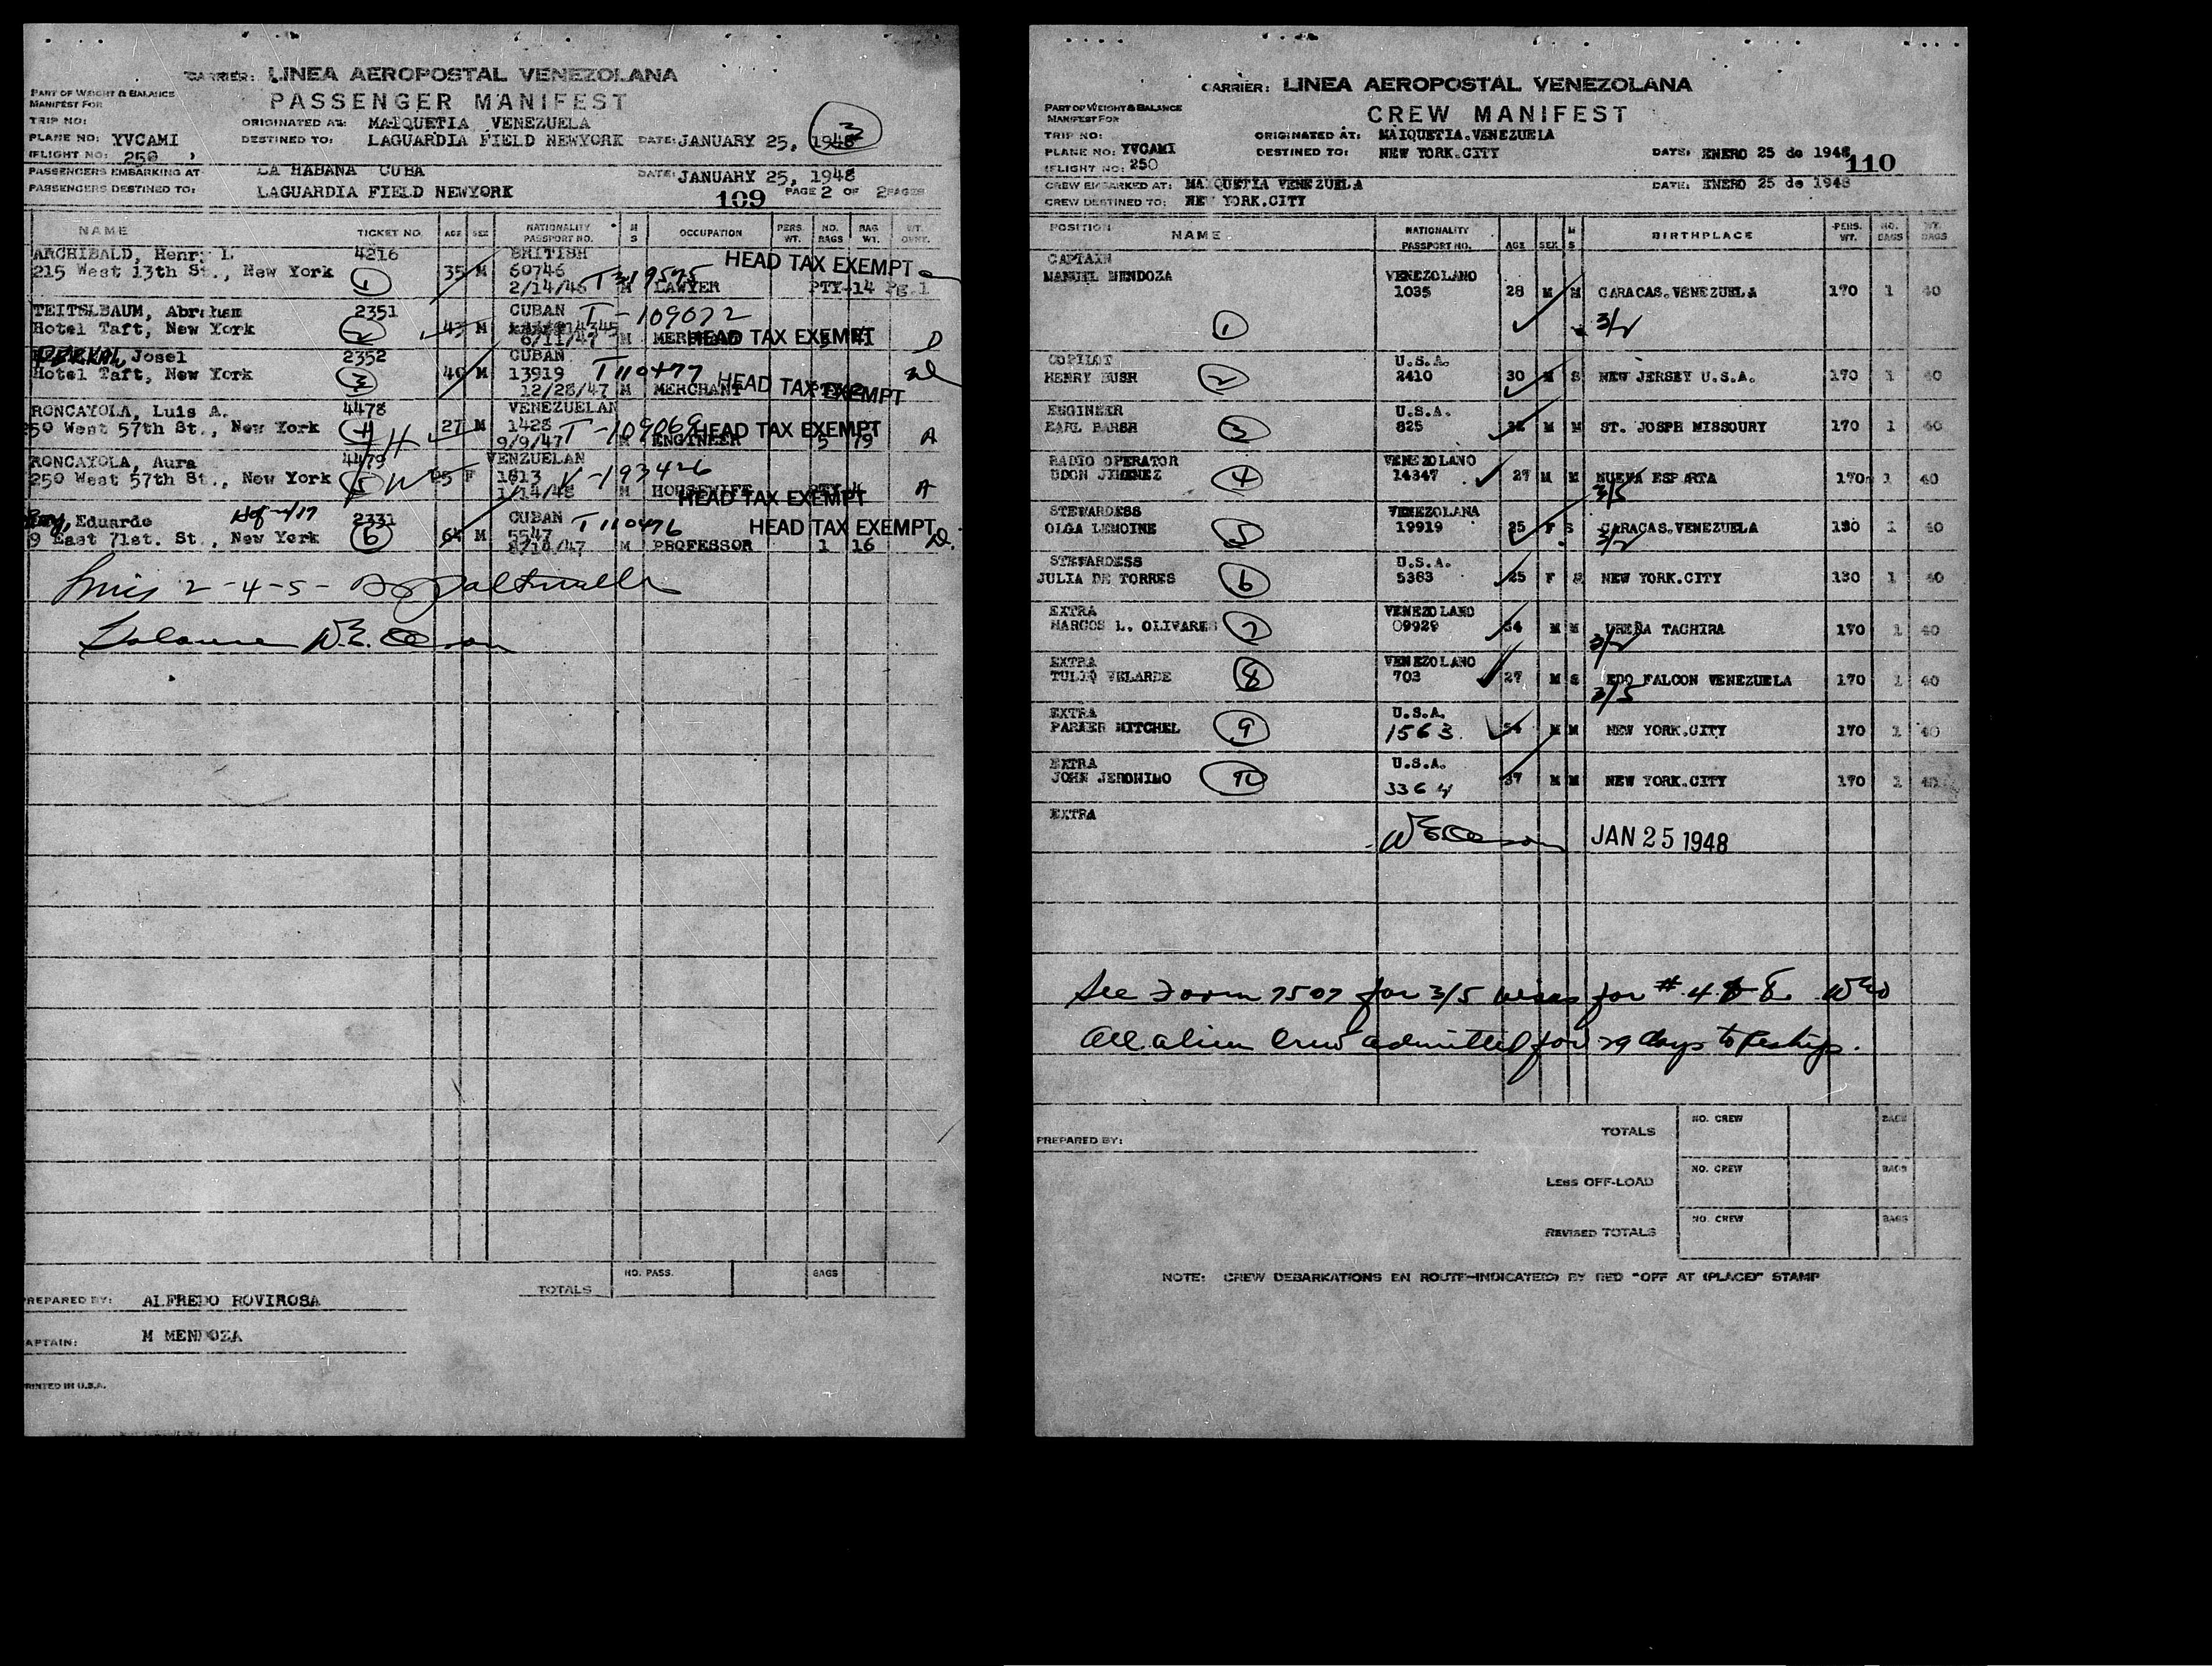 CARRIER: LINEA AEROPOSTAL VENEZOLANA
PASSENGER MANIFEST
PART OF WEIGHT & BALANCE
MANIFEST FOR
TRIP NO: ORIGINATED AT: MAIQUETIA VENEZUELA
PLANE NO: YVCAMI DESTINED TO: LAGUARDIA FIELD NEWYORK DATE: JANUARY 25, 1948 3
(FLIGHT NO: 250 )
PASSENGERS EMBARKING AT LA HABANA CUBA DATE: JANUARY 25, 1948
PASSENGERS DESTINED TO: LAGUARDIA FIELD NEWYORK 109 PAGE 2 OF 2 PAGES
NAME TICKET NO. AGE SEX NATIONALITY PASSPORT NO. M S OCCUPATION PERS. WT. NO. BAGS BAG WT. WT. OVRT.
ARCHIBALD, Henry L 4216 BRITISH HEAD TAX EXEMPT
215 West 13th St., New York 1 35 M 60746 T 319575
2/14/46 M LAWYER PTY-14 Pg.1
TEITELBAUM, Abraham 2351 CUBAN T-109072
Hotel Taft, New York 2 43 M
6/11/47 M HEAD TAX EXEMPT 41 D
Josel 2352 CUBAN T110477
Hotel Taft, New York 3 40 M 13919 HEAD TAX EXEMPT
12/28/47 M MERCHANT
RONCAYOLA, Luis A. 4478 VENEZUELAN
250 West 57th St., New York 4 27 M 1428 HEAD TAX EXEMPT
9/9/47 M ENGINEER 5 79 A
RONCAYOLA, Aura 4479 VENZUELAN
250 West 57th St., New York 5 25 F 1813 V-193426
1/14/48 M HOUSEWIFE HEAD TAX EXEMPT A
Eduardo 2331 CUBAN T110476 HEAD TAX EXEMPT
9 East 71st. St., New York 6 64 M 5547
M PROFESSOR 1 16 D.
2-4-5-
W.E.
TOTALS NO. PASS. BAGS
PREPARED BY: ALFREDO ROVIROSA
CAPTAIN: M MENDOZA
PRINTED IN U.S.A.
CARRIER: LINEA AEROPOSTAL VENEZOLANA
CREW MANIFEST
PART OF WEIGHT & BALANCE
MANIFEST FOR
TRIP NO: ORIGINATED AT: MAIQUETIA.VENEZUELA
PLANE NO: YVCAMI DESTINED TO: NEW YORK.CITY DATE: ENERO 25 de 1948 110
(FLIGHT NO: 250
CREW EMBARKED AT: MAIQUETIA VENEZUELA DATE: ENERO 25 de 1948
CREW DESTINED TO: NEW YORK.CITY
POSITION NAME NATIONALITY PASSPORT NO. AGE SEX M S BIRTHPLACE PERS. WT. NO. BAGS WT. BAGS
CAPTAIN
MANUEL MENDOZA VENEZOLANO
1 1035 28 M M CARACAS.VENEZUELA 170 1 40
3/2
COPILOT U.S.A.
HENRY BUSH 2 2410 30 M S NEW JERSEY U.S.A. 170 1 40
ENGINEER U.S.A.
EARL BARSH 3 825 M M ST. JOSPH MISSOURY 170 1 40
RADIO OPERATOR VENEZOLANO
ODON JIMENEZ 4 14347 27 M M NUEVA ESPARTA 170 1 40
3/5
STEWARDESS VENEZOLANA
OLGA LEMOINE 5 19919 25 F S CARACAS.VENEZUELA 130 1 40
3/2
STEWARDESS U.S.A.
JULIA DE TORRES 6 5383 25 F S NEW YORK.CITY 130 1 40
EXTRA VENEZOLANO
MARCOS L. OLIVARES 7 09929 34 M M UREÑA TACHIRA 170 1 40
3/2
EXTRA VENEZOLANO
TULIO VELARDE 8 703 27 M S EDO FALCON VENEZUELA 170 1 40
3/5
EXTRA U.S.A.
PARKER MITCHEL 9 1563 M M NEW YORK.CITY 170 1 40
EXTRA U.S.A.
JOHN JERONIMO 10 3364 37 M M NEW YORK.CITY 170 1 40
EXTRA
JAN 25 1948
See Form 7507 for 3/5 visas for # 4 & 8.
All alien crew admitted for 29 days to
PREPARED BY: TOTALS NO. CREW BAGS
LESS OFF-LOAD NO. CREW BAGS
REVISED TOTALS NO. CREW BAGS
NOTE: CREW DEBARKATIONS EN ROUTE-INDICATE(D) BY RED "OFF AT (PLACE)" STAMP